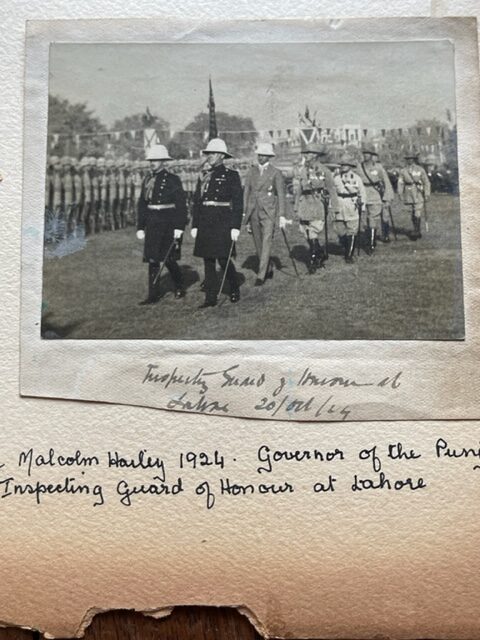 Inspecting Guard of Honour at
Lahore 20/Oct/24
Malcolm Hailey 1924. Governor of the Pun
Inspecting Guard of Honour at Lahore